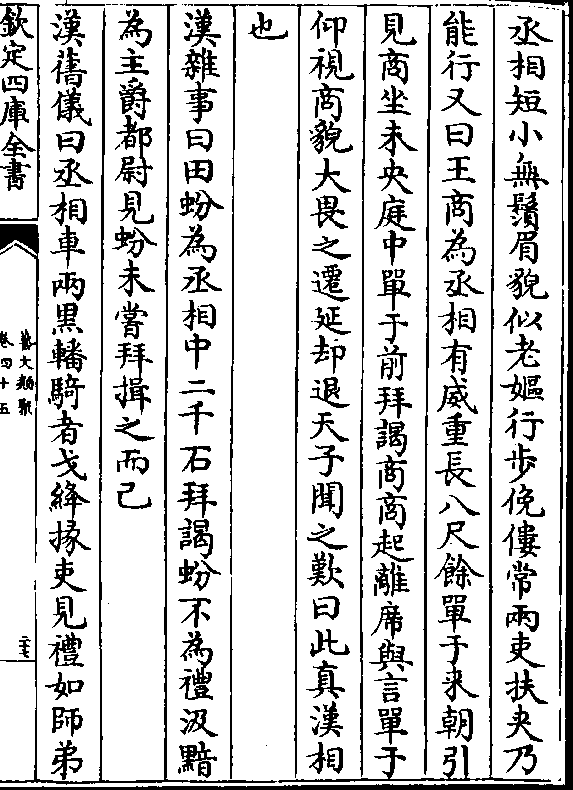 丞相短小無鬚眉貌似老嫗行步俛僂常兩吏扶夾乃
能行又曰王商為丞相有威重長八尺餘單于來朝引
見商坐未央庭中單于前拜謁商商起離席與言單于
仰視商貌大畏之遷延却退天子聞之歎曰此真漢相
也
漢雜事曰田蚡為丞相中二千石拜謁蚡不為禮汲黯
為主爵都尉見蚡未嘗拜揖之而已
漢舊儀曰丞相車兩黑轓騎者戈絳掾吏見禮如師弟
欽定四庫全書
藝文類聚
卷四十五